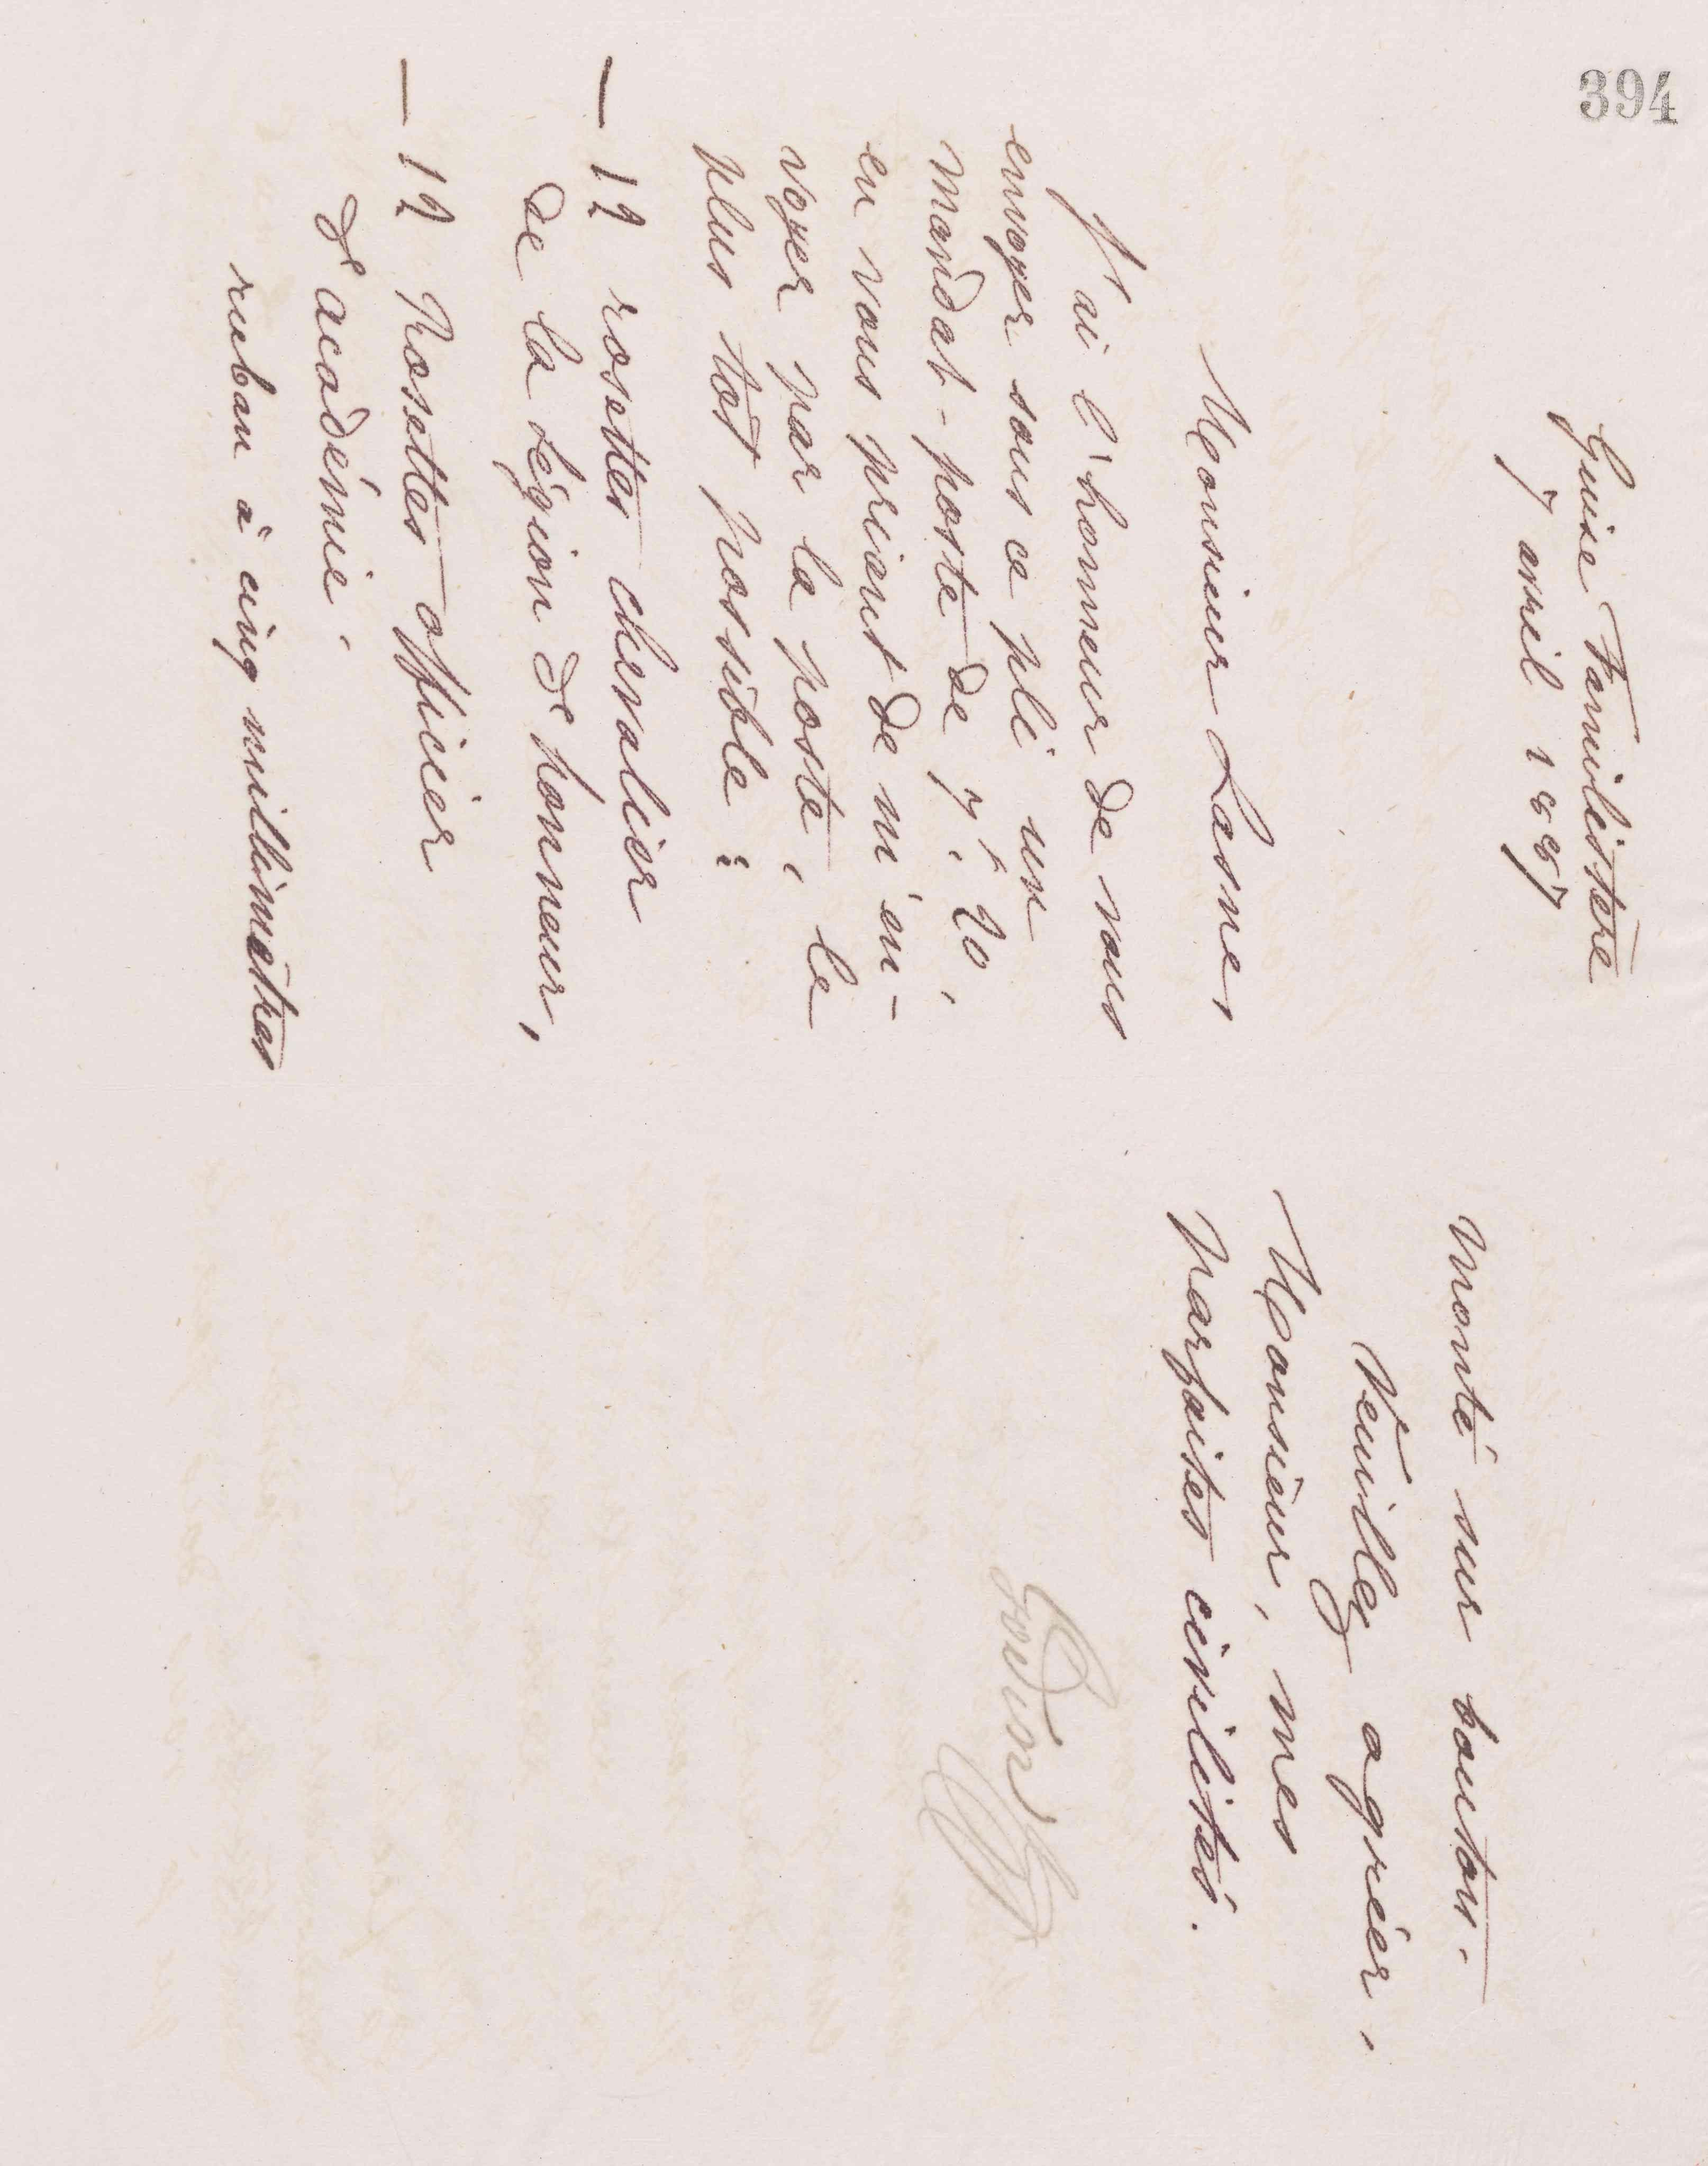 394
Guise Familistère
7 avril 1887
Monsieur Lasne,
J'ai l'honneur de vous
envoyer sous ce pli un
mandat-poste de 7f. 20,
en vous priant de m'en-
voyer par la poste, le
plus tôt possible :
— 12 rosettes chevalier
de la Légion d'honneur,
— 12 Rosettes officier
d'académie.
ruban à cinq millimètres
monté sur bouton.
Veuillez agréer,
Monsieur, mes
parfaites civilités.
Godin